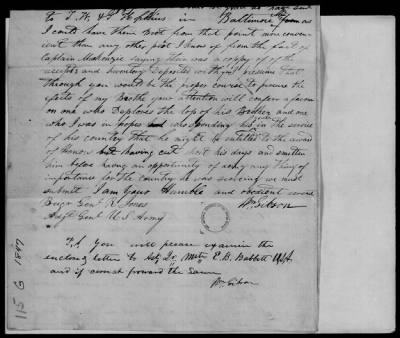 to J. W. & Hopkins in Baltimore from as
I could have them sent from that point more conven-
ient than any other place I know of from the fact of
Captain McKenzie saying there was a copy of of the
receipts and Inventory Deposited with you I presume that
through you would be the proper course to procure the
effects of my Brother your attention will confer a favour
on one who Deplores the loss of his Brother and one
who I was in hopes who spending his in the service
of his country that he might be entitled to the award
of honour but having cut short his days and smitten
him before having an opportunity of doing any thing of
importance for the country he was serving we must
submit I am your Humble and obedient servt
Wm. Gibson
Brigr Genl R. Jones
Adjt Genl U.S. Army
P.S. You will please examine the
enclosed letter to E. B. Babbitt USA
and if correct forward the same
Wm. Gibson
115 G 1847